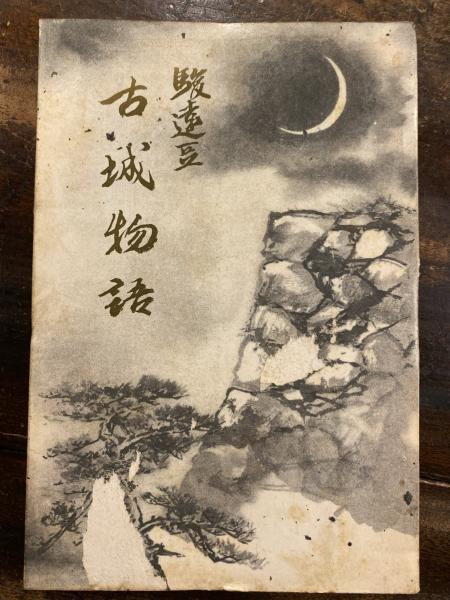 駿遠豆
古城物語